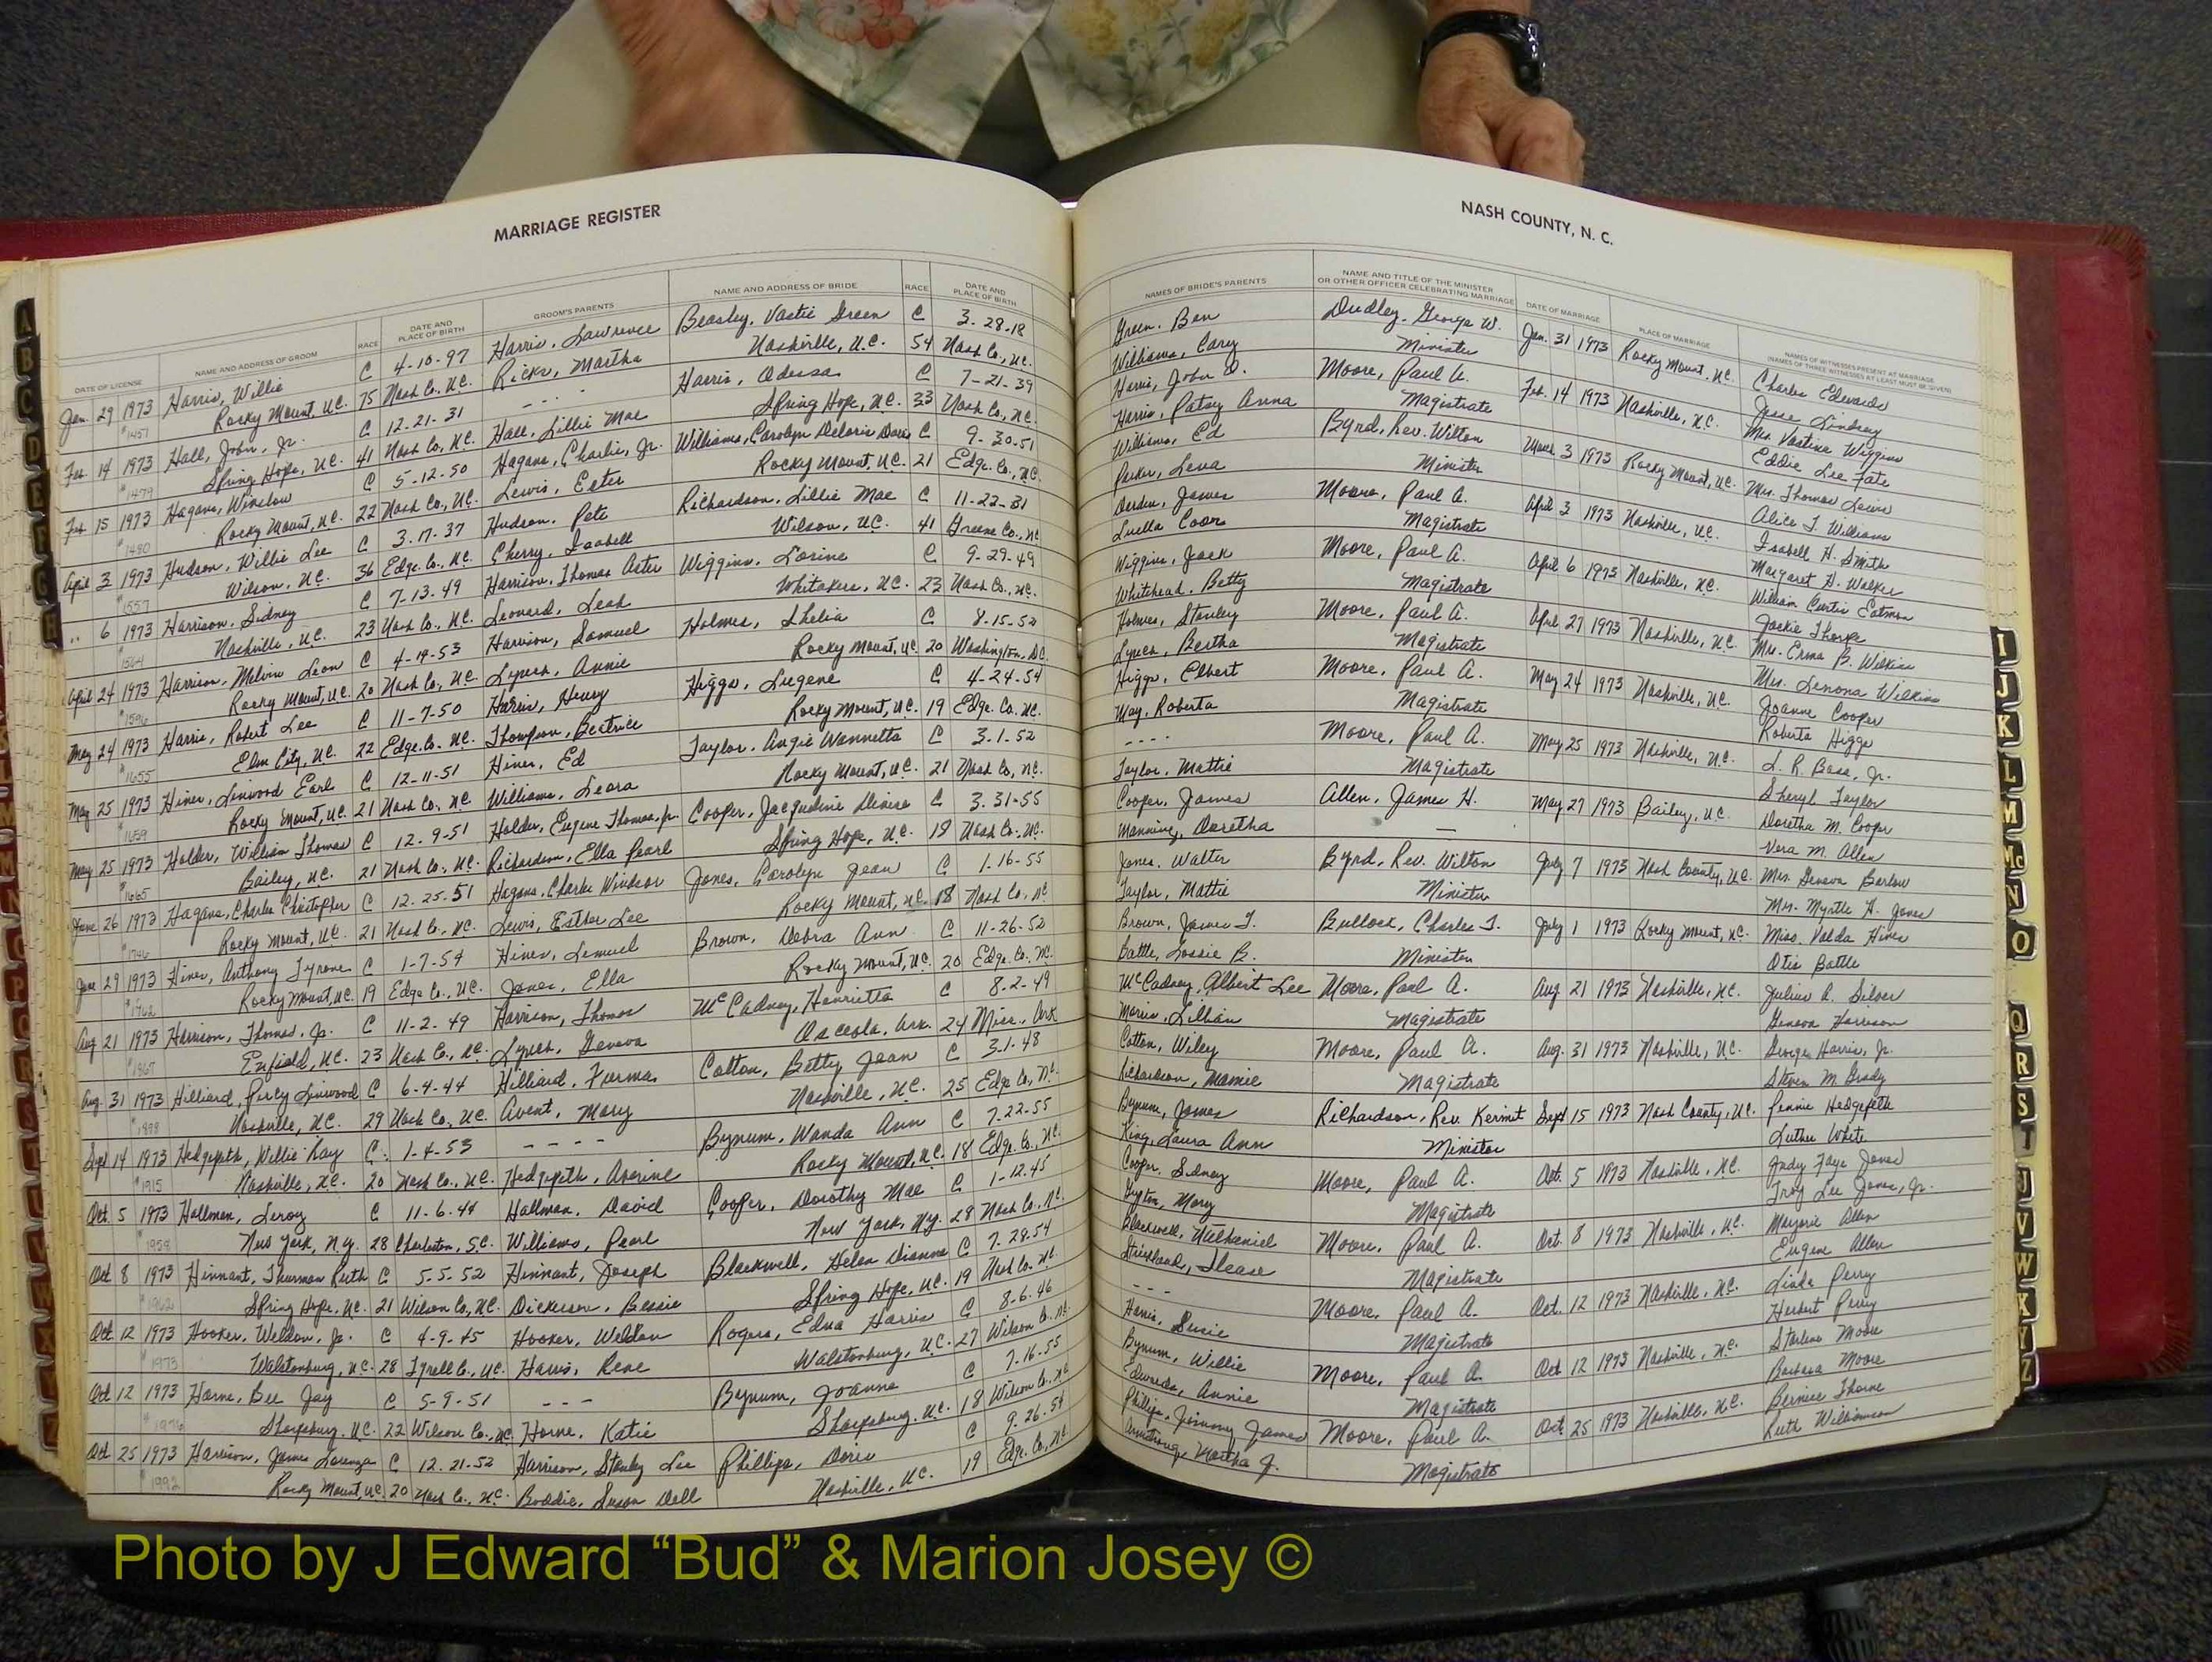 MARRIAGE REGISTER
DATE OF LICENSE NAME AND ADDRESS OF GROOM RACE DATE AND PLACE OF BIRTH GROOM'S PARENTS NAME AND ADDRESS OF BRIDE RACE DATE AND PLACE OF BIRTH
Jan. 29 1973 Harris, Willie C 4-10-97 Harris, Lawrence Beasley, Vastie Green C 3-28-18
#1457 Rocky Mount, N.C. 75 Nash Co., N.C. Ricks, Martha Nashville, N.C. 54 Nash Co., N.C.
Feb. 14 1973 Hall, John, Jr. C 12-21-31 - - - Harris, Odessa C 7-21-39
#1479 Spring Hope, N.C. 41 Nash Co., N.C. Hall, Lillie Mae Spring Hope, N.C. 33 Nash Co., N.C.
Feb 15 1973 Hagans, Winslow C 5-12-50 Hagans, Charlie, Jr. Williams, Carolyn Deloris C 9-30-51
#1480 Rocky Mount, N.C. 22 Nash Co., N.C. Lewis, Ester Rocky Mount, N.C. 21 Edge. Co., N.C.
April 3 1973 Hudson, Willie Lee C 3-17-37 Hudson, Pete Richardson, Lillie Mae C 11-22-31
#1557 Wilson, N.C. 36 Edge. Co., N.C. Cherry, Isabell Wilson, N.C. 41 Greene Co., N.C.
" 6 1973 Harrison, Sidney C 7-13-49 Harrison, Thomas Aster Wiggins, Lorine C 9-29-49
#1564 Nashville, N.C. 23 Nash Co., N.C. Leonard, Leah Whitakers, N.C. 23 Nash Co., N.C.
April 24 1973 Harrison, Melvin Leon C 4-19-53 Harrison, Samuel Holmes, Shelia C 8-15-52
#1596 Rocky Mount, N.C. 20 Nash Co., N.C. Lynch, Annie Rocky Mount, N.C. 20 Washington, D.C.
May 24 1973 Harris, Robert Lee C 11-7-50 Harris, Henry Higgs, Lugene C 4-24-54
#1655 Elm City, N.C. 22 Edge. Co., N.C. Thompson, Beatrice Rocky Mount, N.C. 19 Edge. Co. N.C.
May 25 1973 Hines, Linwood Earl C 12-11-51 Hines, Ed Taylor, Angie Wannetta C 3-1-52
#1659 Rocky Mount, N.C. 21 Nash Co., N.C. Williams, Leora Rocky Mount, N.C. 21 Nash Co., N.C.
May 25 1973 Holder, William Thomas C 12-9-51 Holder, Eugene Thomas, Jr. Cooper, Jacqueline C 3-31-55
#1665 Bailey, N.C. 21 Nash Co., N.C. Richardson, Ella Pearl Spring Hope, N.C. 18 Nash Co., N.C.
June 26 1973 Hagans, Charles Christopher C 12-25-51 Hagans, Charlie Windsor Jones, Carolyn Jean C 1-16-55
#1746 Rocky Mount, N.C. 21 Nash Co., N.C. Lewis, Esther Lee Rocky Mount, N.C. 18 Nash Co., N.C.
June 29 1973 Hines, Anthony Tyrone C 1-7-54 Hines, Lemuel Brown, Debra Ann C 11-26-52
Rocky Mount, N.C. 19 Edge Co., N.C. Jones, Ella Rocky Mount, N.C. 20 Edge. Co., N.C.
Aug 21 1973 Harrison, Thomas, Jr. C 11-2-49 Harrison, Thomas McCadney, Henrietta C 8-2-49
#1867 Enfield, N.C. 23 Nash Co., N.C. Lynch, Geneva Osceola, Ark. 24 Miss., Ark
Aug. 31 1973 Hilliard, Percy Linwood C 6-4-44 Hilliard, Furman Cotton, Betty Jean C 3-1-48
#1898 Nashville, N.C. 29 Nash Co., N.C. Avent, Mary Nashville, N.C. 25 Edge Co., N.C.
Sept 14 1973 Hedgepeth, Willie Ray C 1-4-53 - - - - Bynum, Wanda Ann C 7-22-55
#1915 Nashville, N.C. 20 Nash Co., N.C. Hedgepeth, Averine Rocky Mount, N.C. 18 Edge. Co., N.C.
Oct. 5 1973 Hallman, Leroy C 11-6-44 Hallman, David Cooper, Dorothy Mae C 1-12-45
#1958 New York, N.Y. 28 Charleston, S.C. Williams, Pearl New York, N.Y. 28 Nash Co., N.C.
Oct 8 1973 Hinnant, Thurman Ruth C 5-5-52 Hinnant, Joseph Blackwell, Helen Dianne C 7-28-54
#1962 Spring Hope, N.C. 21 Wilson Co., N.C. Dickerson, Bessie Spring Hope, N.C. 19 Nash Co. N.C.
Oct 12 1973 Hooker, Weldon, Jr. C 4-9-45 Hooker, Weldon Rogers, Edna Harris C 8-6-46
#1973 Walstonburg, N.C. 28 Tyrell Co., N.C. Harris, Rene Walstonburg, N.C. 27 Wilson Co., N.C.
Oct 12 1973 Horne, Bee Jay C 5-9-51 - - - Bynum, Joanne C 7-16-55
Sharpsburg, N.C. 22 Wilson Co., N.C. Horne, Katie Sharpsburg, N.C. 18 Wilson Co., N.C.
Oct 25 1973 Harrison, James Lorenza C 12-21-52 Harrison, Stanley Lee Phillips, Doris C 9-26-54
#1992 Rocky Mount, N.C. 20 Nash Co., N.C. Boddie, Susan Dell Nashville, N.C. 19 Edge. Co., N.C.
NASH COUNTY, N. C.
NAMES OF BRIDE'S PARENTS NAME AND TITLE OF THE MINISTER OR OTHER OFFICER CELEBRATING MARRIAGE DATE OF MARRIAGE PLACE OF MARRIAGE NAMES OF WITNESSES PRESENT AT MARRIAGE (NAMES OF THREE WITNESSES AT LEAST MUST BE GIVEN)
Green, Ben Dudley, George W. Jan. 31 1973 Rocky Mount, N.C. Charles Edwards
Williams, Cary Minister Jesse Lindsey
Mrs. Vastine Wiggins
Harris, John D. Moore, Paul A. Feb. 14 1973 Nashville, N.C. Eddie Lee Tate
Harris, Patsy Anna Magistrate Mrs. Thomas Lewis
Williams, Ed Byrd, Rev. Wilton March 3 1973 Rocky Mount, N.C. Alice T. Williams
Parker, Lena Minister Isabell H. Smith
Darden, James Moore, Paul A. April 3 1973 Nashville, N.C. Margaret D. Walker
Luella Coor Magistrate William Curtis Eatmon
Wiggins, Jack Moore, Paul A. April 6 1973 Nashville, N.C. Jackie Thorpe
Whitehead, Betty Magistrate Mrs. Erma B. Wilkins
Holmes, Stanley Moore, Paul A. April 27 1973 Nashville, N.C. Mrs. Lenona Wilkins
Lynch, Bertha Magistrate Joanne Cooper
Higgs, Elbert Moore, Paul A. May 24 1973 Nashville, N.C. Roberta Higgs
May, Roberta Magistrate L. R. Bass, Jr.
- - - - Moore, Paul A. May 25 1973 Nashville, N.C. Sheryl Taylor
Taylor, Mattie Magistrate
Cooper, James Allen, James H. May 27 1973 Bailey, N.C. Doretha M. Cooper
Manning, Doretha — Vera M. Allen
Jones, Walter Byrd, Rev. Wilton July 7 1973 Nash County, N.C. Mrs. Geneva Barlow
Taylor, Mattie Minister Mrs. Myrtle H. Jones
Brown, James T. Bullock, Charles T. July 1 1973 Rocky Mount, N.C. Miss. Valda Hines
Battle, Lossie B. Minister Otis Battle
McCadney, Albert Lee Moore, Paul A. Aug 21 1973 Nashville, N.C. Julius A. Silver
Morris, Lillian Magistrate Geneva Harrison
Cotton, Wiley Moore, Paul A. Aug. 31 1973 Nashville, N.C. George Harris, Jr.
Richardson, Mamie Magistrate Steven M. Grady
Bynum, James Richardson, Rev. Kermit Sept 15 1973 Nash County, N.C. Pennie Hedgepeth
King, Laura Ann Minister Luther White
Cooper, Sidney Moore, Paul A. Oct. 5 1973 Nashville, N.C. Judy Faye Jones
Gupton, Mary Magistrate Troy Lee Jones, Jr.
Blackwell, Nathaniel Moore, Paul A. Oct. 8 1973 Nashville, N.C. Marjorie Allen
Strickland, Ilease Magistrate Eugene Allen
- - - Moore, Paul A. Oct. 12 1973 Nashville, N.C. Linda Perry
Harris, Susie Magistrate Herbert Perry
Bynum, Willie Moore, Paul A. Oct 12 1973 Nashville, N.C. Starlene Moore
Edwards, Annie Magistrate Barbara Moore
Phillips, Jimmy James Moore, Paul A. Oct 25 1973 Nashville, N.C. Bernice Thorne
Armstrong, Martha J. Magistrate Ruth Williamson
A
B
C
D
E
F
G
H
I
J
K
L
M
Mc
N
O
Q
R
S
T
U
V
W
X
Y
Z
Photo by J Edward “Bud” & Marion Josey ©